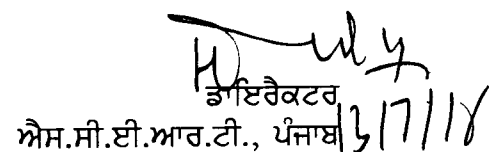 ਡਾਇਰੈਕਟਰ
ਐਸ.ਸੀ.ਈ.ਆਰ.ਟੀ., ਪੰਜਾਬ 13/7/18